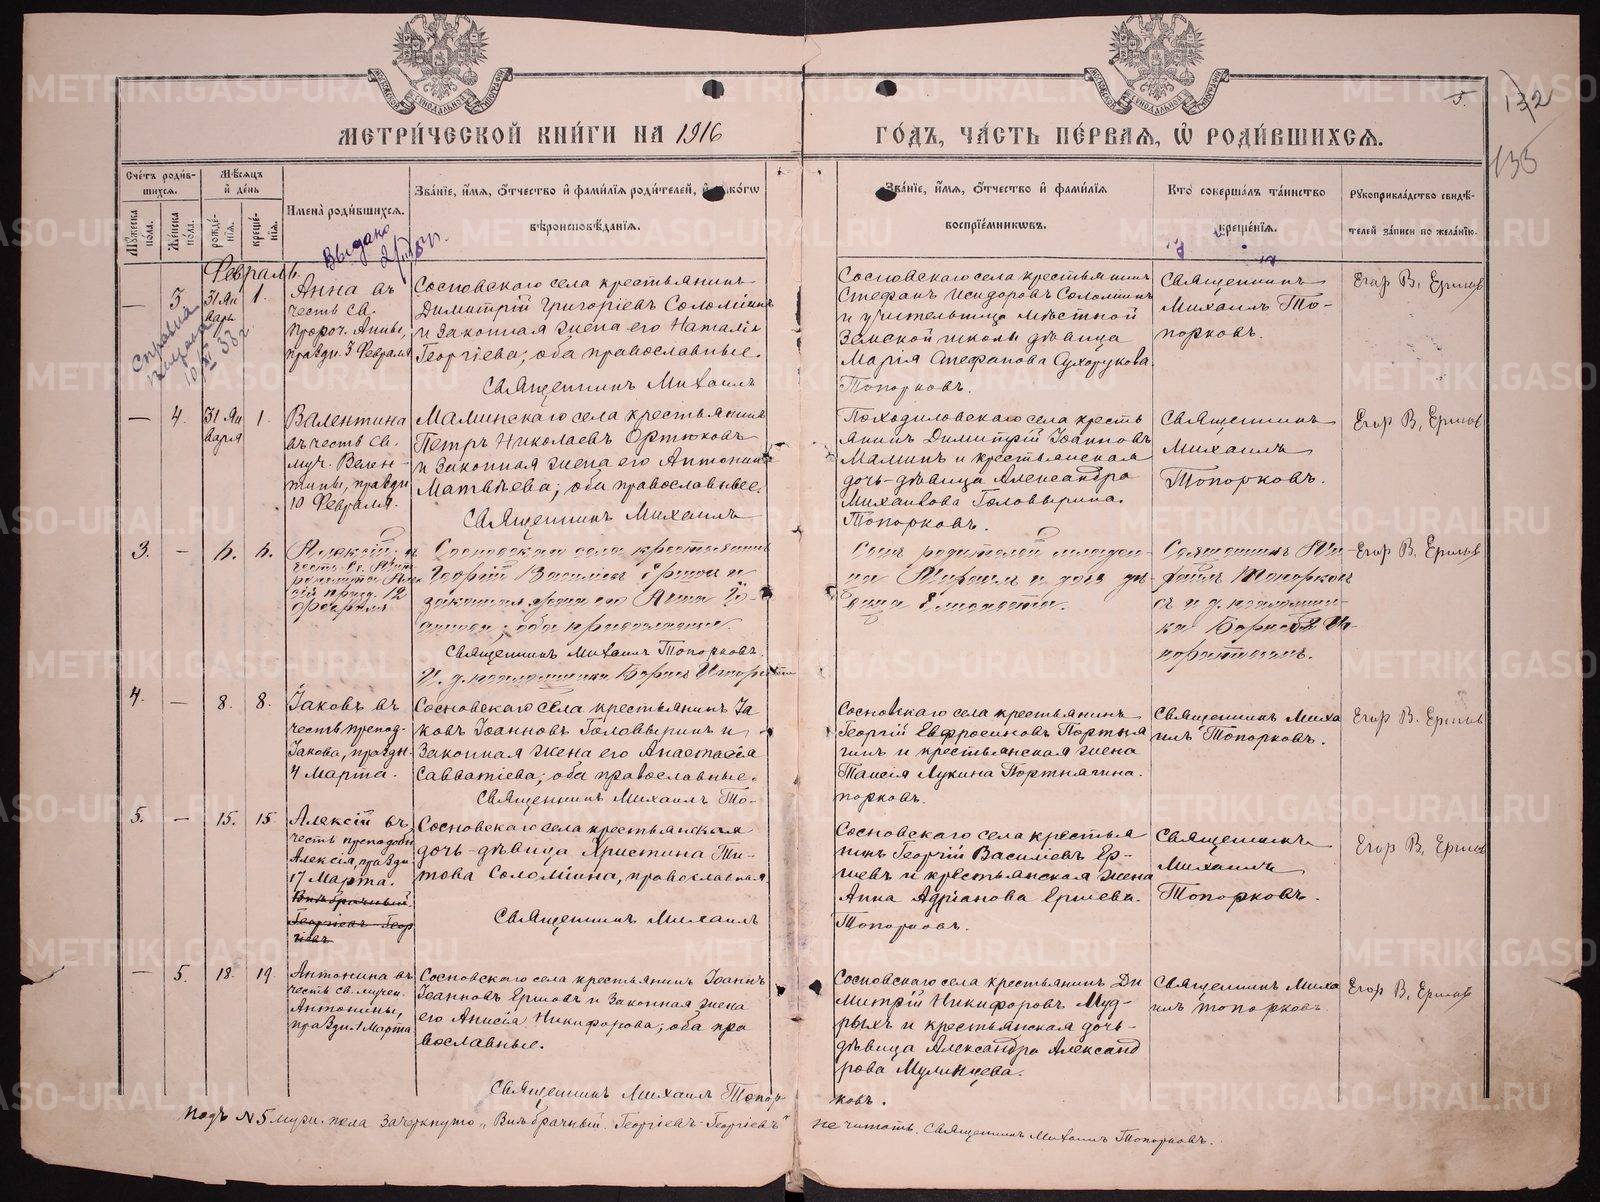 МЕТРИ́ЧЕСКОЙ КНИ́ГИ НА 1916 ГО́ДЪ, ЧА́СТЬ ПЕ́РВАЯ, Ѡ҆ РОДИ́ВШИХСЯ.
132
133
Сче́тъ роди́в-
шихся.
Му́жеска по́ла.
Же́нска по́ла.
Мѣ́сяцъ и҆ де́нь
рожде́-
нїя.
креще́-
нїя.
И҆мена̀ роди́вшихся.
Зва́нїе, и҆́мя, ѻ҆́тчество и҆ фами́лїя роди́телей, и҆ како́гѡ
вѣроисповѣ́данїя.
Зва́нїе, и҆́мя, ѻ҆́тчество и҆ фами́лїя
воспрїе́мниковъ.
Кто̀ соверша́лъ та́инство
креще́нїя.
Рꙋкоприкла́дство свидѣ́-
телей за́писи по жела́нїю.
Выдано
Февраль
—
3
31 Ян
варь
1.
Анна въ
честь св.
Пророч. Анны,
праздн. 3 Февраля
Сосновскаго села крестьянинъ
Димитрій Григоріевъ Соломеинъ
и законная жена его Наталія
Георгіева; оба православные.
Священникъ Михаилъ
Сосновскаго села крестьянинъ
Стефанъ Исидоровъ Соломеинъ
и учительница мѣстной
земской школы дѣвица
Марія Стефанова Сухорукова.
Топорковъ.
Священникъ
Михаилъ То-
порковъ.
Егор В. Ершов
—
4.
31 Ян
варя
1.
Валентина
въ честь св.
муч. Вален-
тины, праздн
10 Февраля.
Маминскаго села крестьянинъ
Петръ Николаевъ Ортюковъ
и законная жена его Антонина
Матвѣева; оба православные.
Священникъ Михаилъ
Походиловскаго села кресть
янинъ Димитрій Іоанновъ
Маминъ и крестьянская
дочь-дѣвица Александра
Михаилова Головырина.
Топорковъ.
Священникъ
Михаилъ
Топорковъ.
Егор В. Ершов
3.
—
6.
6.
Алексій, въ
12
Сосновскаго села крестьянинъ
Георгій Василіевъ Ершов и
законная жена его Анна
оба православные.
Священникъ Михаилъ Топорковъ.
Сынъ
Михаилъ и дочь дѣ
вица Елизавета.
Священникъ Ми-
хаилъ Топорков
ъ и д. псаломщи-
ка Борис
Егор В. Ершов
4.
—
8.
8.
Іаковъ въ
честь препод.
Іакова, праздн.
4 Марта.
Сосновскаго села крестьянинъ Іа
ковъ Іоанновъ Головыринъ и
законная жена его Анастасія
Савватіева; оба православные.
Священникъ Михаилъ То-
Сосновскаго села крестьянинъ
Георгій Евфросиновъ Портня
гинъ и крестьянская жена
Таисія Лукина Портнягина.
порковъ.
Священникъ Миха
илъ Топорковъ.
Егор В. Ершов
5.
—
15.
15
Алексій въ
честь преподобн
Алексія, праздн.
17 Марта.
Внѣбрачный
Георгіевъ Геор
гіевъ
Сосновскаго села крестьянская
дочь-дѣвица Христина Ти-
това Соломеина, православная.
Священникъ Михаилъ
Сосновскаго села крестья
нинъ Георгій Василіевъ Ер-
шевъ и крестьянская жена
Анна Адріанова Ершева.
Топорковъ.
Священникъ
Михаилъ
Топорковъ.
Егор В. Ершов
—
5.
18.
19
Антонина въ
честь св. мучен.
Антонины,
праздн. 1 Марта
Сосновскаго села крестьянинъ Іоаннъ
Іоанновъ Ершовъ и законная жена
его Анисія Никифорова; оба пра
вославные.
Священникъ Михаилъ Топор-
Сосновскаго села крестьянинъ Ди
митрій Никифоровъ Муд-
рыхъ и крестьянская дочь-
дѣвица Александра Александ
рова Мулинцева.
ковъ.
Священникъ Миха
илъ Топорковъ
Егор В. Ершов
Подъ № 5 муж. пола зачеркнуто „Внѣбрачный. Георгіевъ-Георгіевъ“ не читать. Священникъ Михаилъ Топорковъ.
METRIKI.GASO-URAL.RU